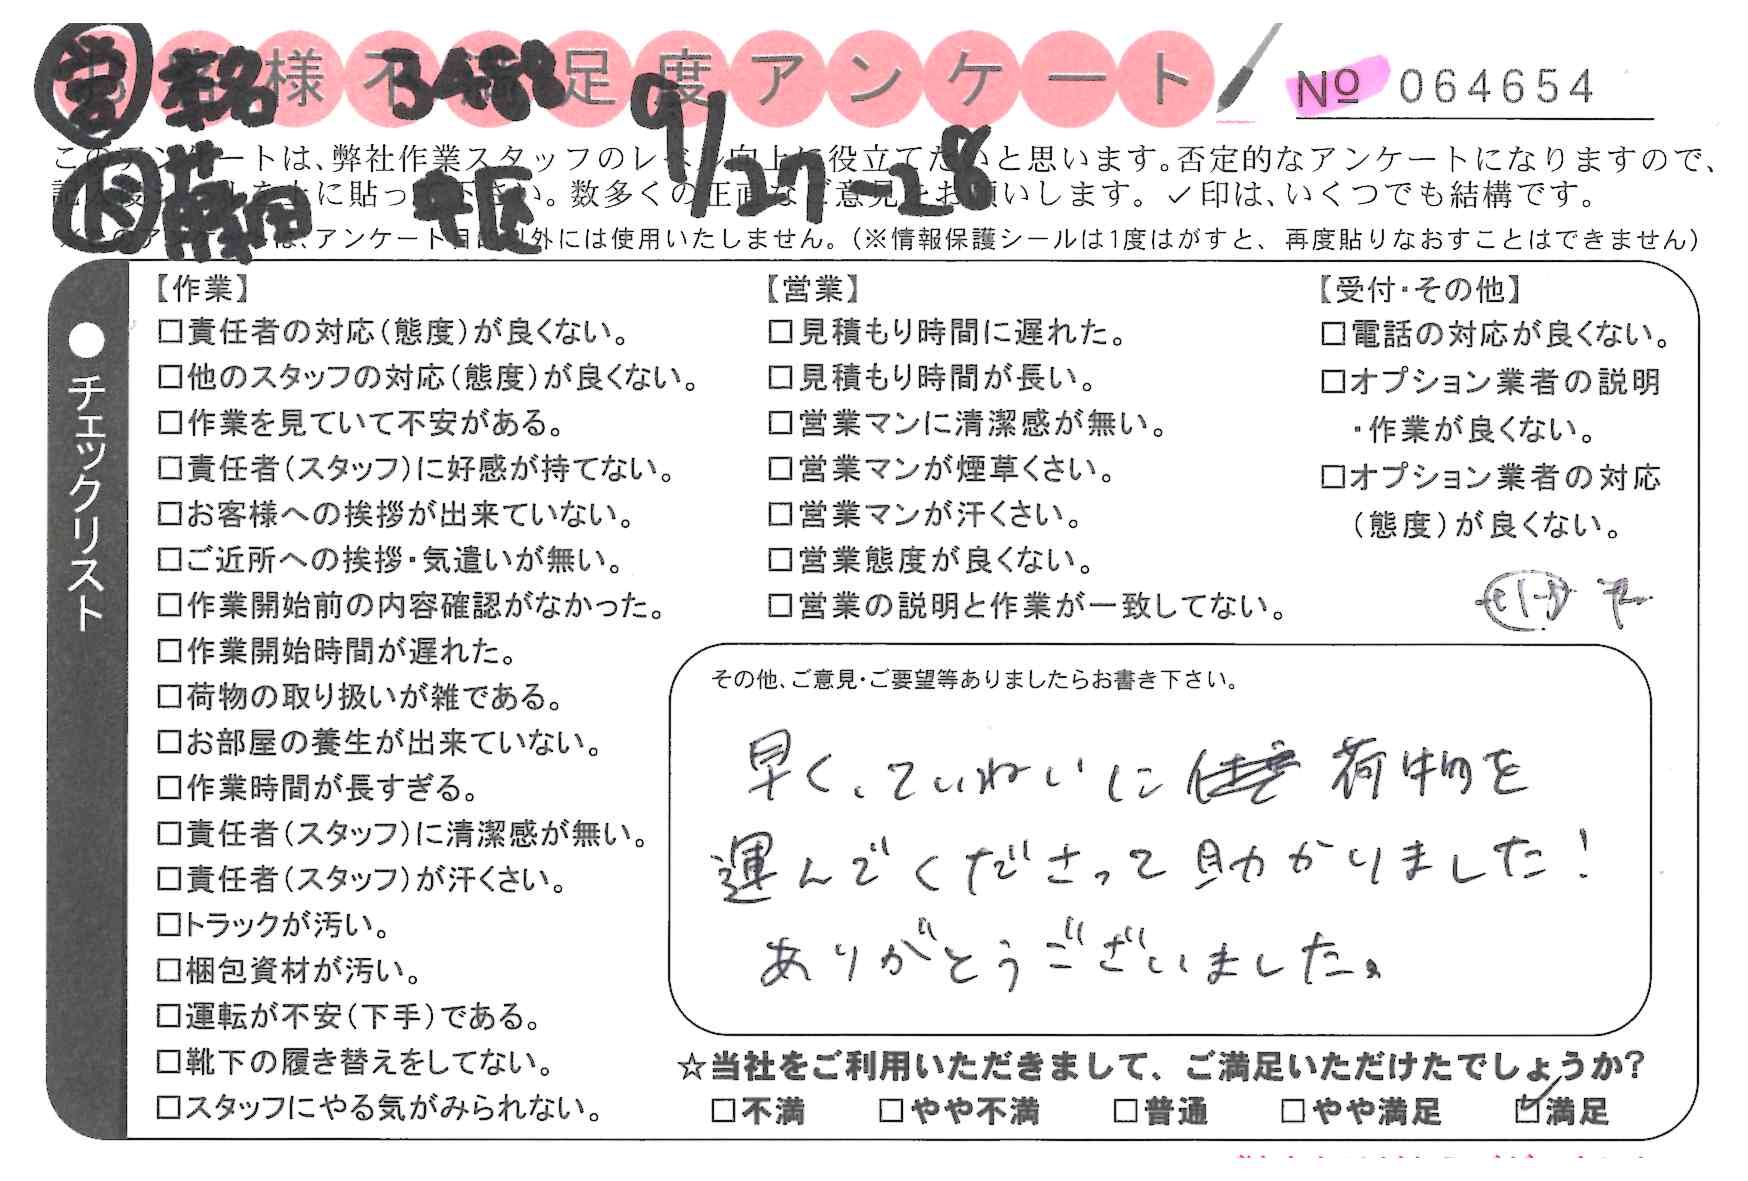 お客様不満足度アンケート
№ 064654
9/27-28
このアンケートは、弊社作業スタッフのレベル向上に役立てたいと思います。否定的なアンケートになりますので、
に貼って下さい。数多くの正直なご意見をお願いします。✓印は、いくつでも結構です。
アンケート目的以外には使用いたしません。(※情報保護シールは1度はがすと、再度貼りなおすことはできません)
●チェックリスト
【作業】
□責任者の対応(態度)が良くない。
□他のスタッフの対応(態度)が良くない。
□作業を見ていて不安がある。
□責任者(スタッフ)に好感が持てない。
□お客様への挨拶が出来ていない。
□ご近所への挨拶・気遣いが無い。
□作業開始前の内容確認がなかった。
□作業開始時間が遅れた。
□荷物の取り扱いが雑である。
□お部屋の養生が出来ていない。
□作業時間が長すぎる。
□責任者(スタッフ)に清潔感が無い。
□責任者(スタッフ)が汗くさい。
□トラックが汚い。
□梱包資材が汚い。
□運転が不安(下手)である。
□靴下の履き替えをしてない。
□スタッフにやる気がみられない。
【営業】
□見積もり時間に遅れた。
□見積もり時間が長い。
□営業マンに清潔感が無い。
□営業マンが煙草くさい。
□営業マンが汗くさい。
□営業態度が良くない。
□営業の説明と作業が一致してない。
【受付・その他】
□電話の対応が良くない。
□オプション業者の説明
・作業が良くない。
□オプション業者の対応
(態度)が良くない。
その他、ご意見・ご要望等ありましたらお書き下さい。
早く、ていねいに 荷物を
運んでくださって助かりました!
ありがとうございました。
☆当社をご利用いただきまして、ご満足いただけたでしょうか?
□不満 □やや不満 □普通 □やや満足 ☑満足